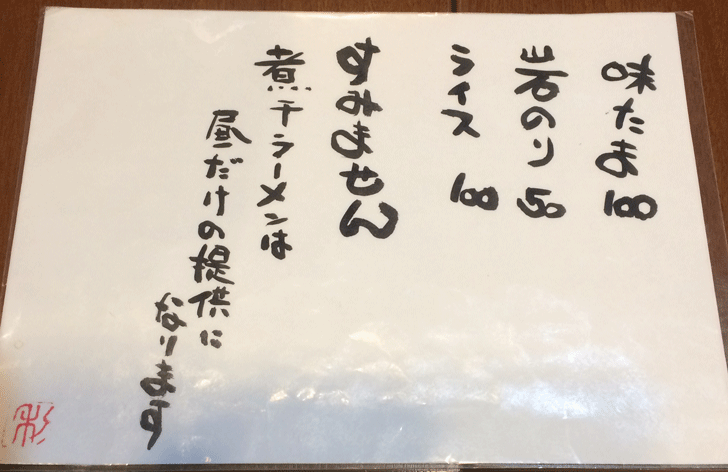 味たま 100
岩のり 50
ライス 100
すみません
煮干ラーメンは
昼だけの提供に
なります
彩